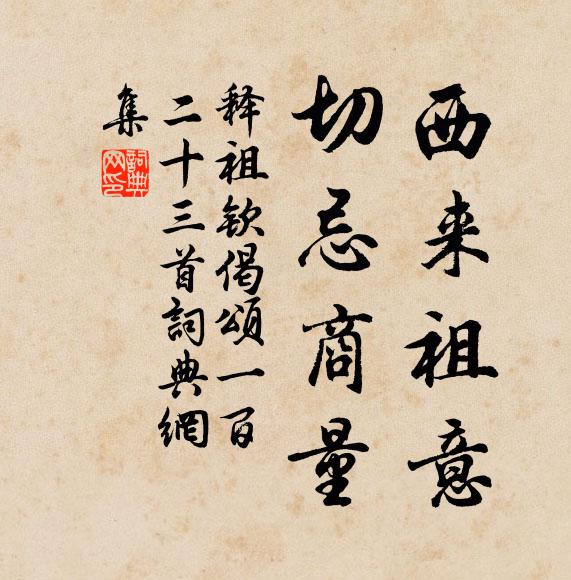 西来祖意
切忌商量
释祖欽偈頌一百
二十三首詞典網
集
詞典网印